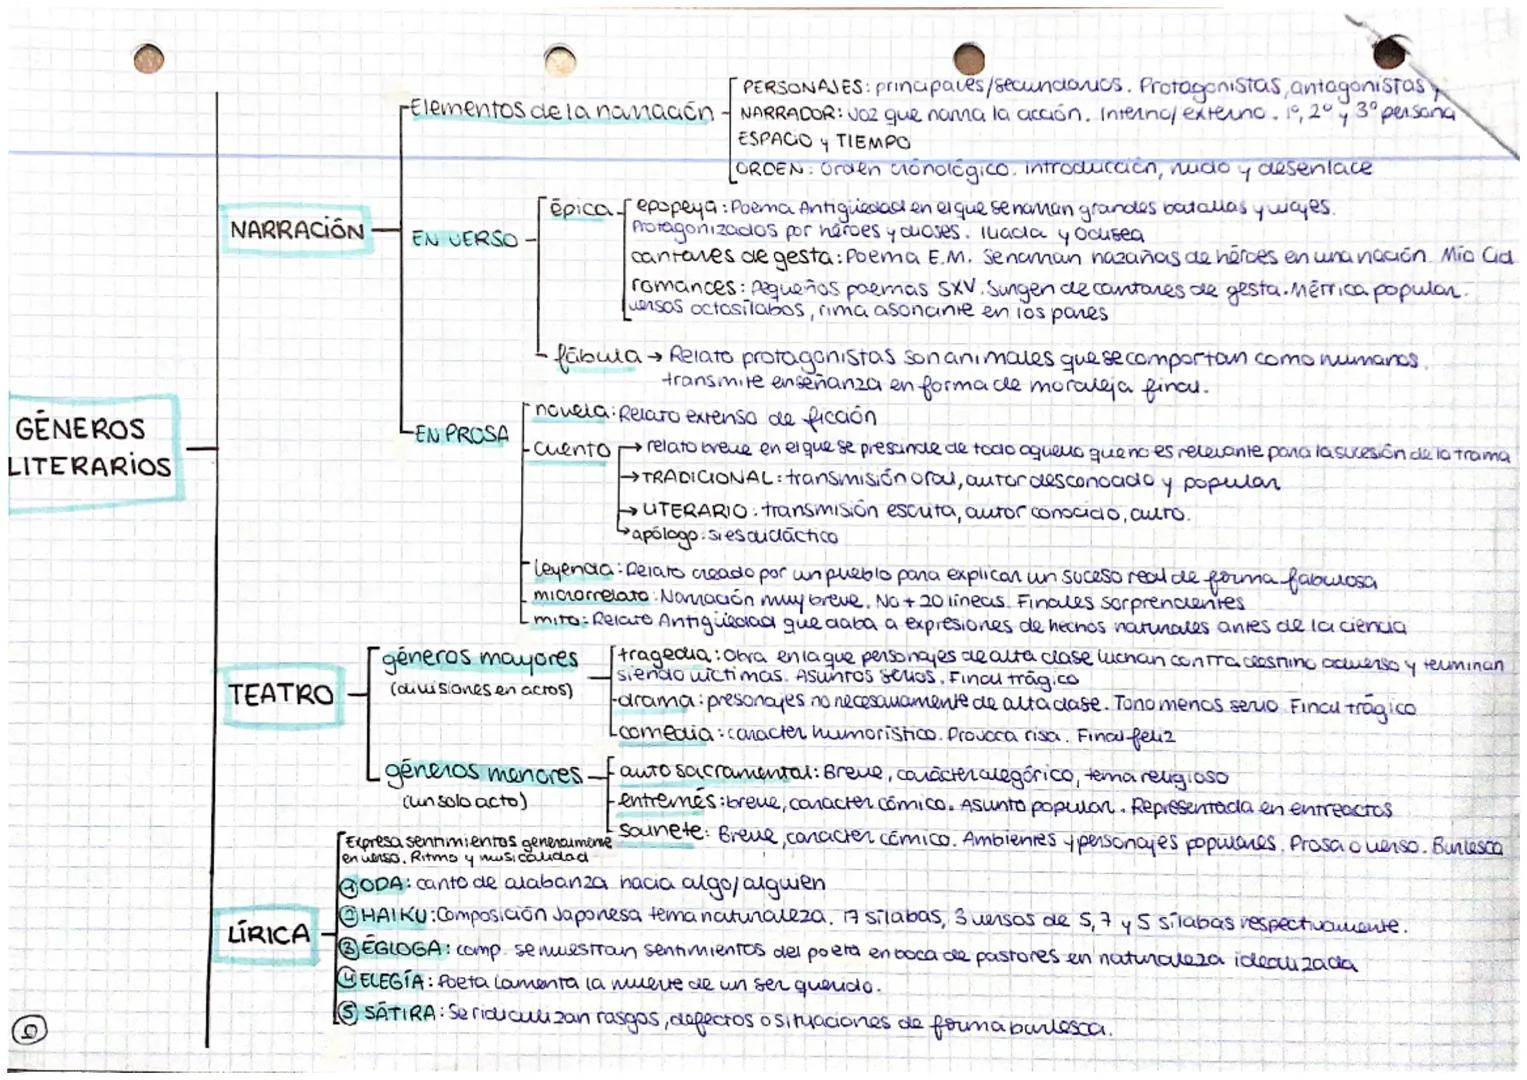 GÉNEROS
LITERARIOS
NARRACIÓN
Elementos de la narración
PERSONAJES: principales/secundarios. Protagonistas, antagonistas
NARRADOR: voz que narra la acción. Interno/externo. 1º, 2º y 3º persona
ESPACIO y TIEMPO
ORDEN: orden cronológico. introducción, nudo y desenlace
EN VERSO
épica
epopeya: Poema Antigüedad en el que se narran grandes batallas y viajes.
Protagonizados por héroes y dioses. Iliada y Odisea
cantares de gesta: Poema E.M. Se narran hazañas de héroes en una nación. Mio Cid
romances: Pequeños poemas SXV. Surgen de cantares de gesta. Métrica popular.
versos octosílabos, rima asonante en los pares
fábula → Relato protagonistas son animales que se comportan como humanos.
transmite enseñanza en forma de moraleja final.
EN PROSA
novela: Relato extenso de ficción
cuento
→ relato breve en el que se prescinde de todo aquello que no es relevante para la sucesión de la trama
→ TRADICIONAL: transmisión oral, autor desconocido y popular
→ LITERARIO: transmisión escrita, autor conocido, culto.
→ apólogo: si es didáctico
leyenda: Relato creado por un pueblo para explicar un suceso real de forma fabulosa
microrrelato: Narración muy breve. No + 20 líneas. Finales sorprendentes
mito: Relato Antigüedad que daba a expresiones de hechos naturales antes de la ciencia
TEATRO
géneros mayores
(divisiones en actos)
tragedia: Obra en la que personajes de alta clase luchan contra destino adverso y terminan
siendo víctimas. Asuntos serios. Final trágico
drama: presonajes no necesariamente de alta clase. Tono menos serio. Final trágico
comedia: carácter humorístico. Provoca risa. Final feliz
géneros menores
(un solo acto)
auto sacramental: Breve, carácter alegórico, tema religioso
entremés: breve, carácter cómico. Asunto popular. Representada en entreactos
sainete: Breve, carácter cómico. Ambientes y personajes populares. Prosa o verso. Burlesca
LÍRICA
Expresa sentimientos generalmente
en verso. Ritmo y musicalidad
① ODA: canto de alabanza hacia algo/alguien
② HAIKU: Composición Japonesa tema naturaleza. 17 sílabas, 3 versos de 5, 7 y 5 sílabas respectivamente.
③ ÉGLOGA: comp. se muestran sentimientos del poeta en boca de pastores en naturaleza idealizada
④ ELEGÍA: Poeta lamenta la muerte de un ser querido.
⑤ SÁTIRA: Se ridiculizan rasgos, defectos o situaciones de forma burlesca.